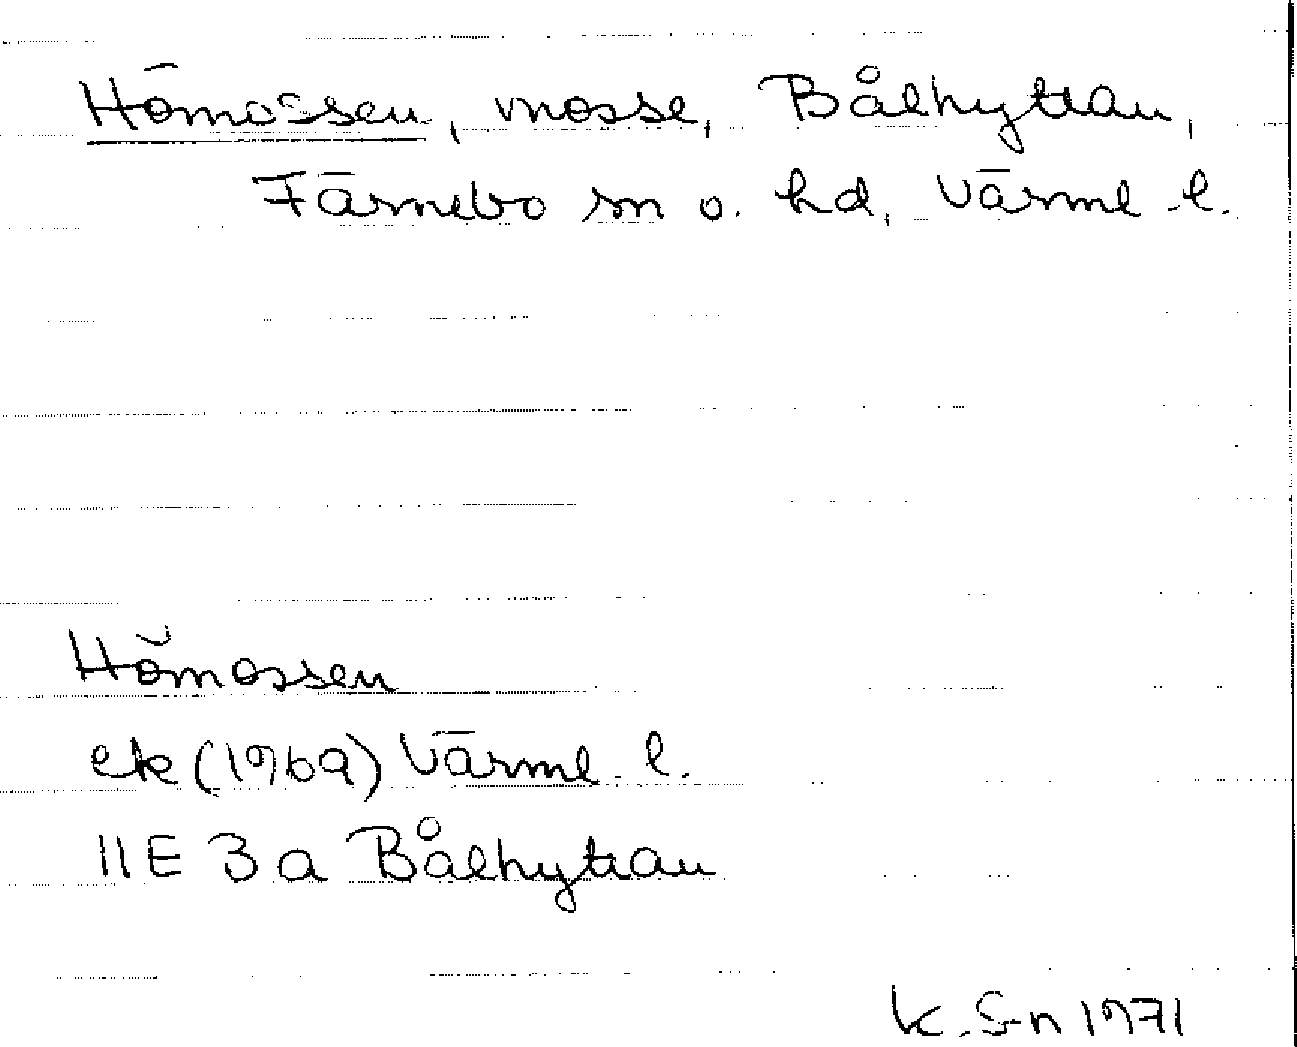 Hömossen, mosse, Bålhyttan,
Färnebo sn o. hd, Värml. l.
Hömossen
ek (1969) Värml. l.
11E 3a Bålhyttan
K. S-n 1971